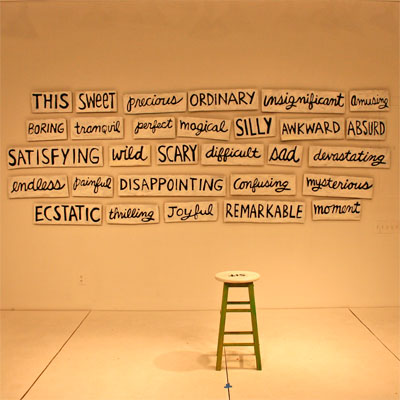 THIS SWEET precious ORDINARY insignificant amusing
BORING tranquil perfect magical SILLY AWKWARD ABSURD
SATISFYING wild SCARY difficult sad devastating
endless painful DISAPPOINTING confusing mysterious
ECSTATIC thrilling Joyful REMARKABLE moment